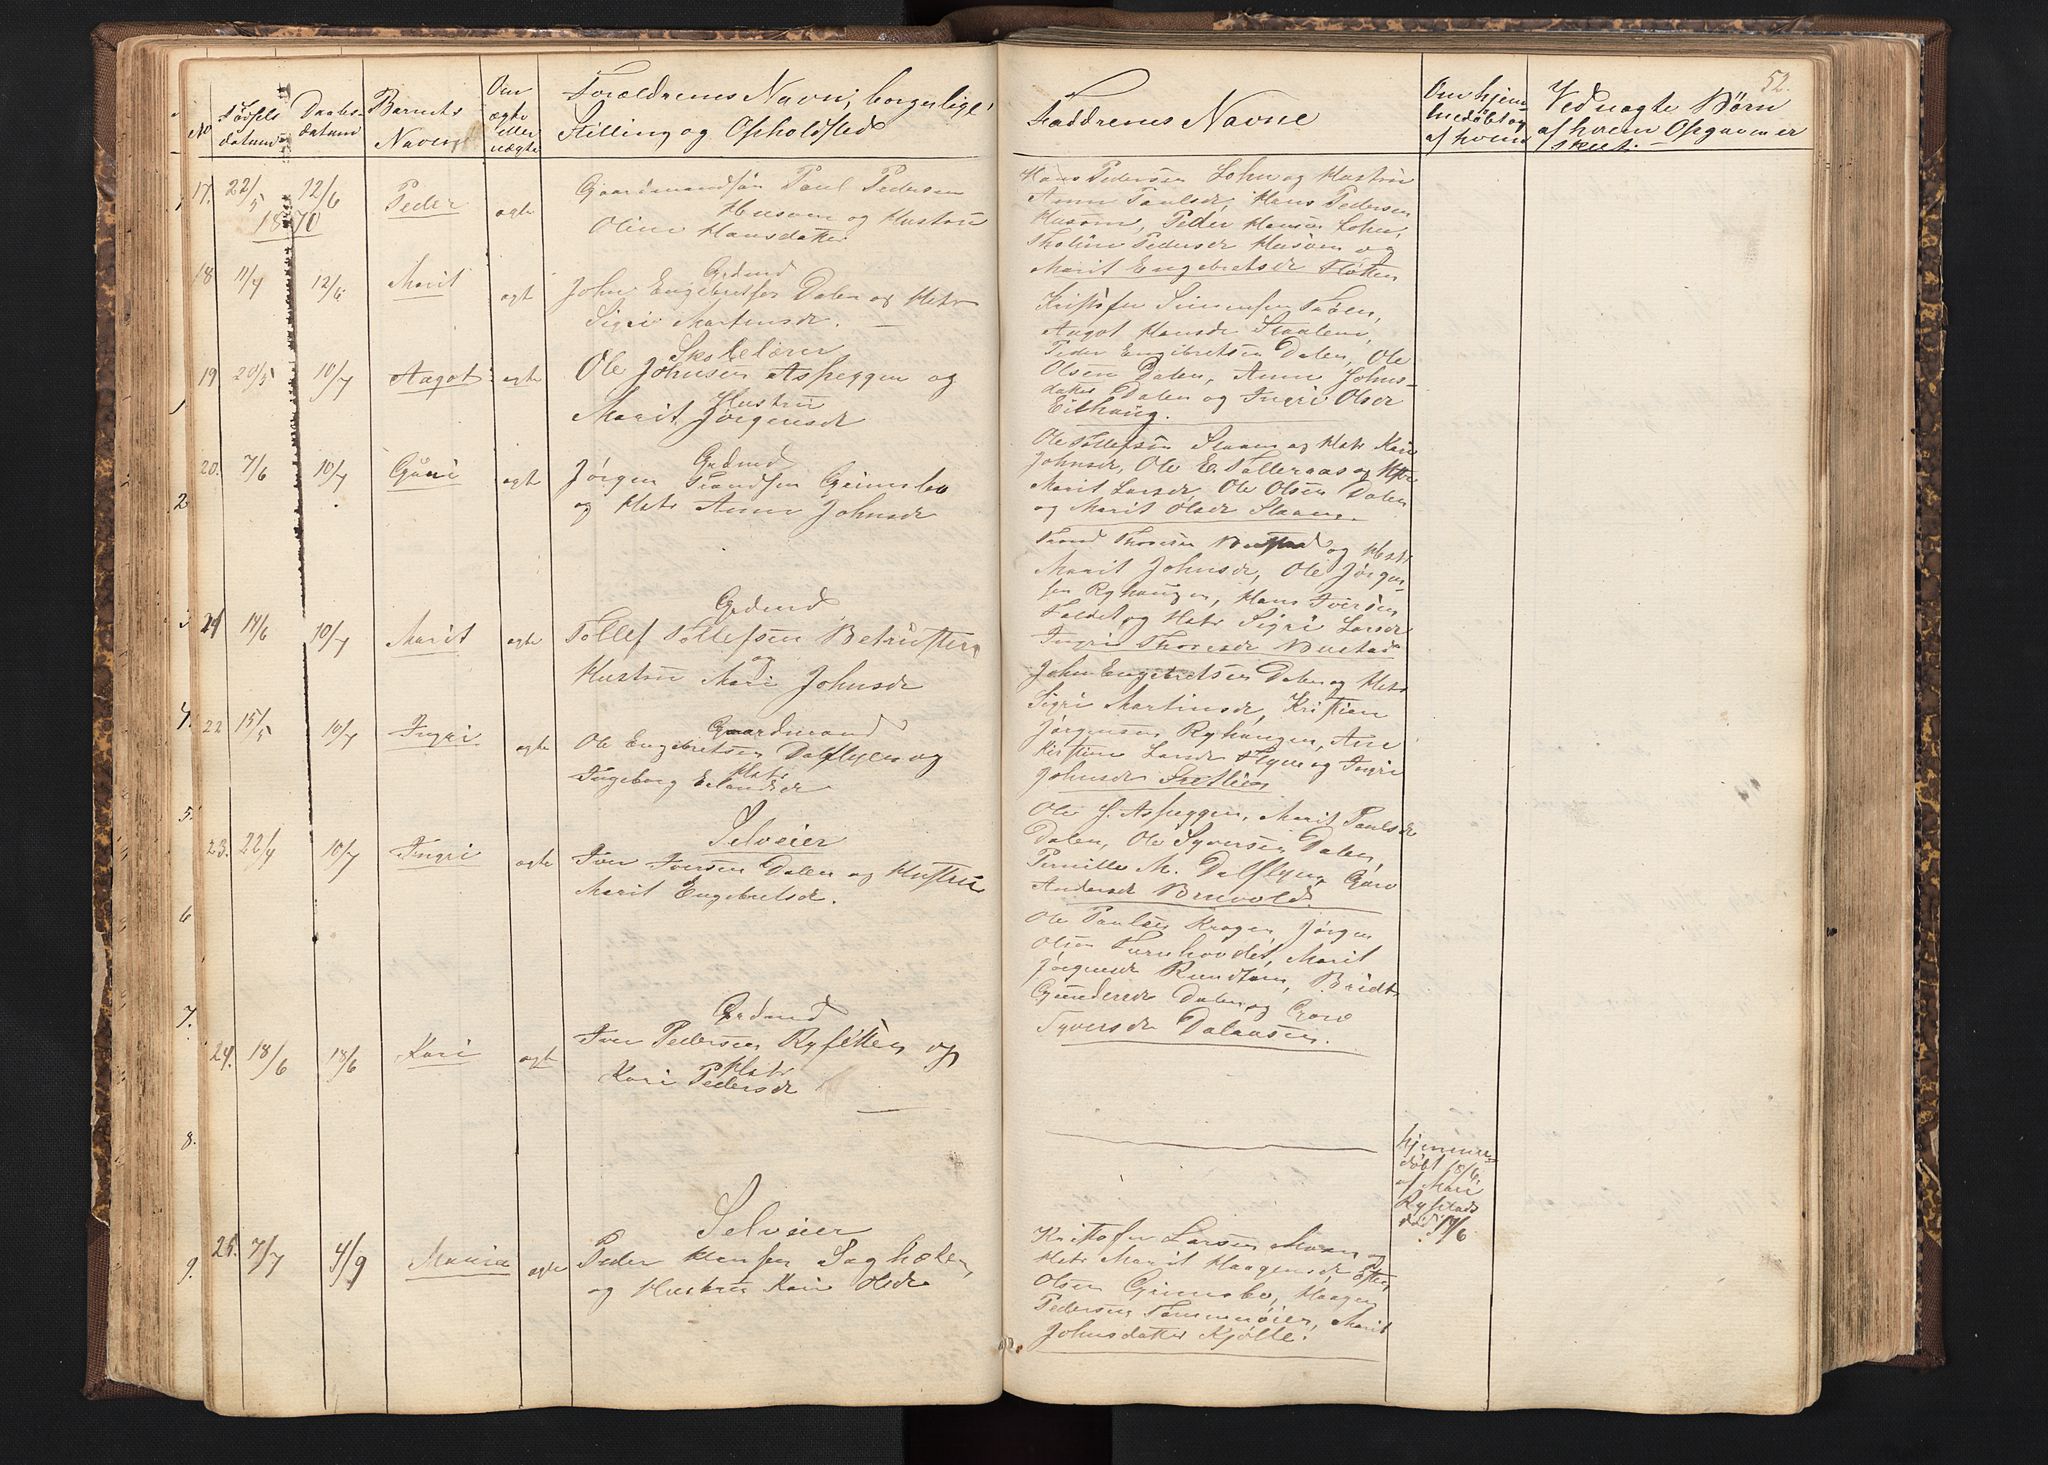 52.
No
Fødsels
datum
Daabs
datum
Barnets
Navn
Om
ægte
eller
uægte
Forældrenes Navn, borgerlige
Stilling og Opholdsted
Faddrenes Navne
Om hjem-
medøbt og
af hvem
Ved uægte Børn
af hvem Opgaven er
skeet.
17. 22/5 12/6 Peder ægte Gaardmandsøn Paul Pedersen
1870
Husom og Hustru
Oline Hansdatter
Hans Pedersen Lohn og Hustru
Anne Paulsdr, Hans Pedersen
Husom, Peder Hansen Lohn,
Pedersdr Husom og
Marit Engebretsdr Fløtten
18 11/4 12/6 Marit ægt Grdmd
John Engebretsen Dalen og Hstr
Sigri Martinsdr.
Kristofer Simensen
Aagot Hansdr
Peder Engebretsen Dalen, Ole
Olsen Dalen, Anne Johns-
datter Dalen og Ingri Olsdr
19 20/5 10/7 Aagot ægte Skolelærer
Ole Johnsen Aspeggen og
Hustru
Marit Jørgensdr
Ole Tollefsen og Hstr Kari
Johnsdr, Ole E. Tolleraas og Hstr
Marit Larsdr, Ole Olsen Dalen
og Marit Olsdr
20. 7/6 10/7 Guri ægte Grdmd
Jørgen Trondsen Grimsbo
og Hstr Anne Johnsdr
Trond Thoresen og Hstr
Marit Johnsdr, Ole Jørgen-
sen Ryhaugen, Hans Iversen
og Hstr Sigri Larsdr
Ingri Thoresdr
21 14/6 10/7 Marit ægte Grdmd
Tollef Tollefsen
og
Hustru Mari Johnsdr
John Engebretsen Dalen og Hstr
Sigri Martinsdr, Kristian
Jørgensen Ryhaugen, Ane
Kirstine og Ingri
Johnsdr
22 15/5 10/7 Ingri ægte Gaardmand
Ole Engebretsen Dalflyen og
Hstr
Ingeborg Erlandsdr
Ole J. Aspeggen, Marit Paulsdr
Dalen, Ole Syversen Dalen,
Pernille M. Dalflyen, Goro
Andersdr Bruvold.
23. 22/4 10/7 Ingri ægte Selveier
Iver Iversen Dalen og Hustru
Marit Engebretsdr.
Ole Paulsen Krogen, Jørgen
Olsen Turnhovdet, Marit
Jørgensdr, Bridt
Gundersdr Dalen og Goro
Syversdr
24. 18/6 18/6 Kari ægte Grdmd
Iver Pedersen Rysletten og
Hstr
Kari Pedersdr
hjemme-
døbt 18/6
af Mari
Rystad
død 19/6
25. 7/7 4/9 Maria ægte Selveier
Peder Hansen
og Hustru Kari Olsdr
Kristofer Larsen Moen og
Hstr Marit Haagensdr,
Olsen Grimsbo, Haagen
Pedersen, Marit
Johnsdatter Kjølle.
1
2
3
4.
5.
6
7.
8.
9.